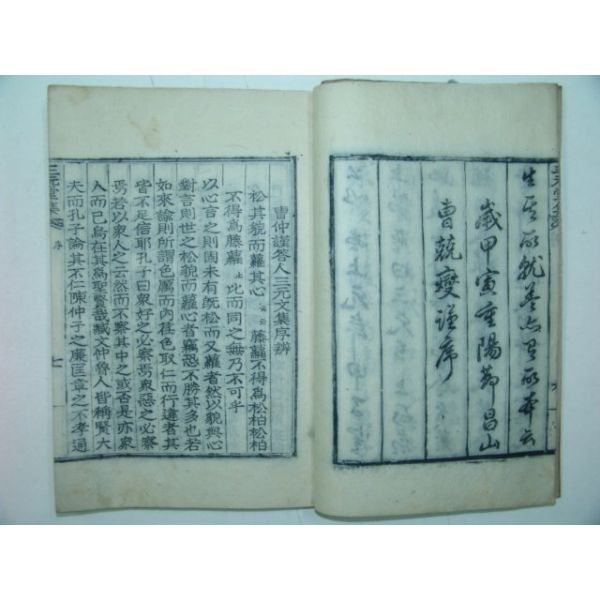 生 所就 有所本云
歲甲寅重陽節昌山
曺兢燮謹序
曺仲謹答人三元文集序辨
松其貌而蘿其心 云云 藤蘿不得爲松柏松柏
不得爲藤蘿 止 比而同之無乃不可乎
以心言之則固未有旣松而又蘿者然以貌與心
對言則世之松貌而蘿心者竊恐不勝其多也若
如來諭則所謂色厲而內荏色取仁而行違者其
皆不足信耶孔子曰衆好之必察焉衆惡之必察
焉若以衆人之云然而不察其中之或否是亦衆
人而已烏在其爲聖賢哉臧文仲魯人皆稱賢大
夫而孔子論其不仁陳仲子之廉匡章之不孝通
序
七